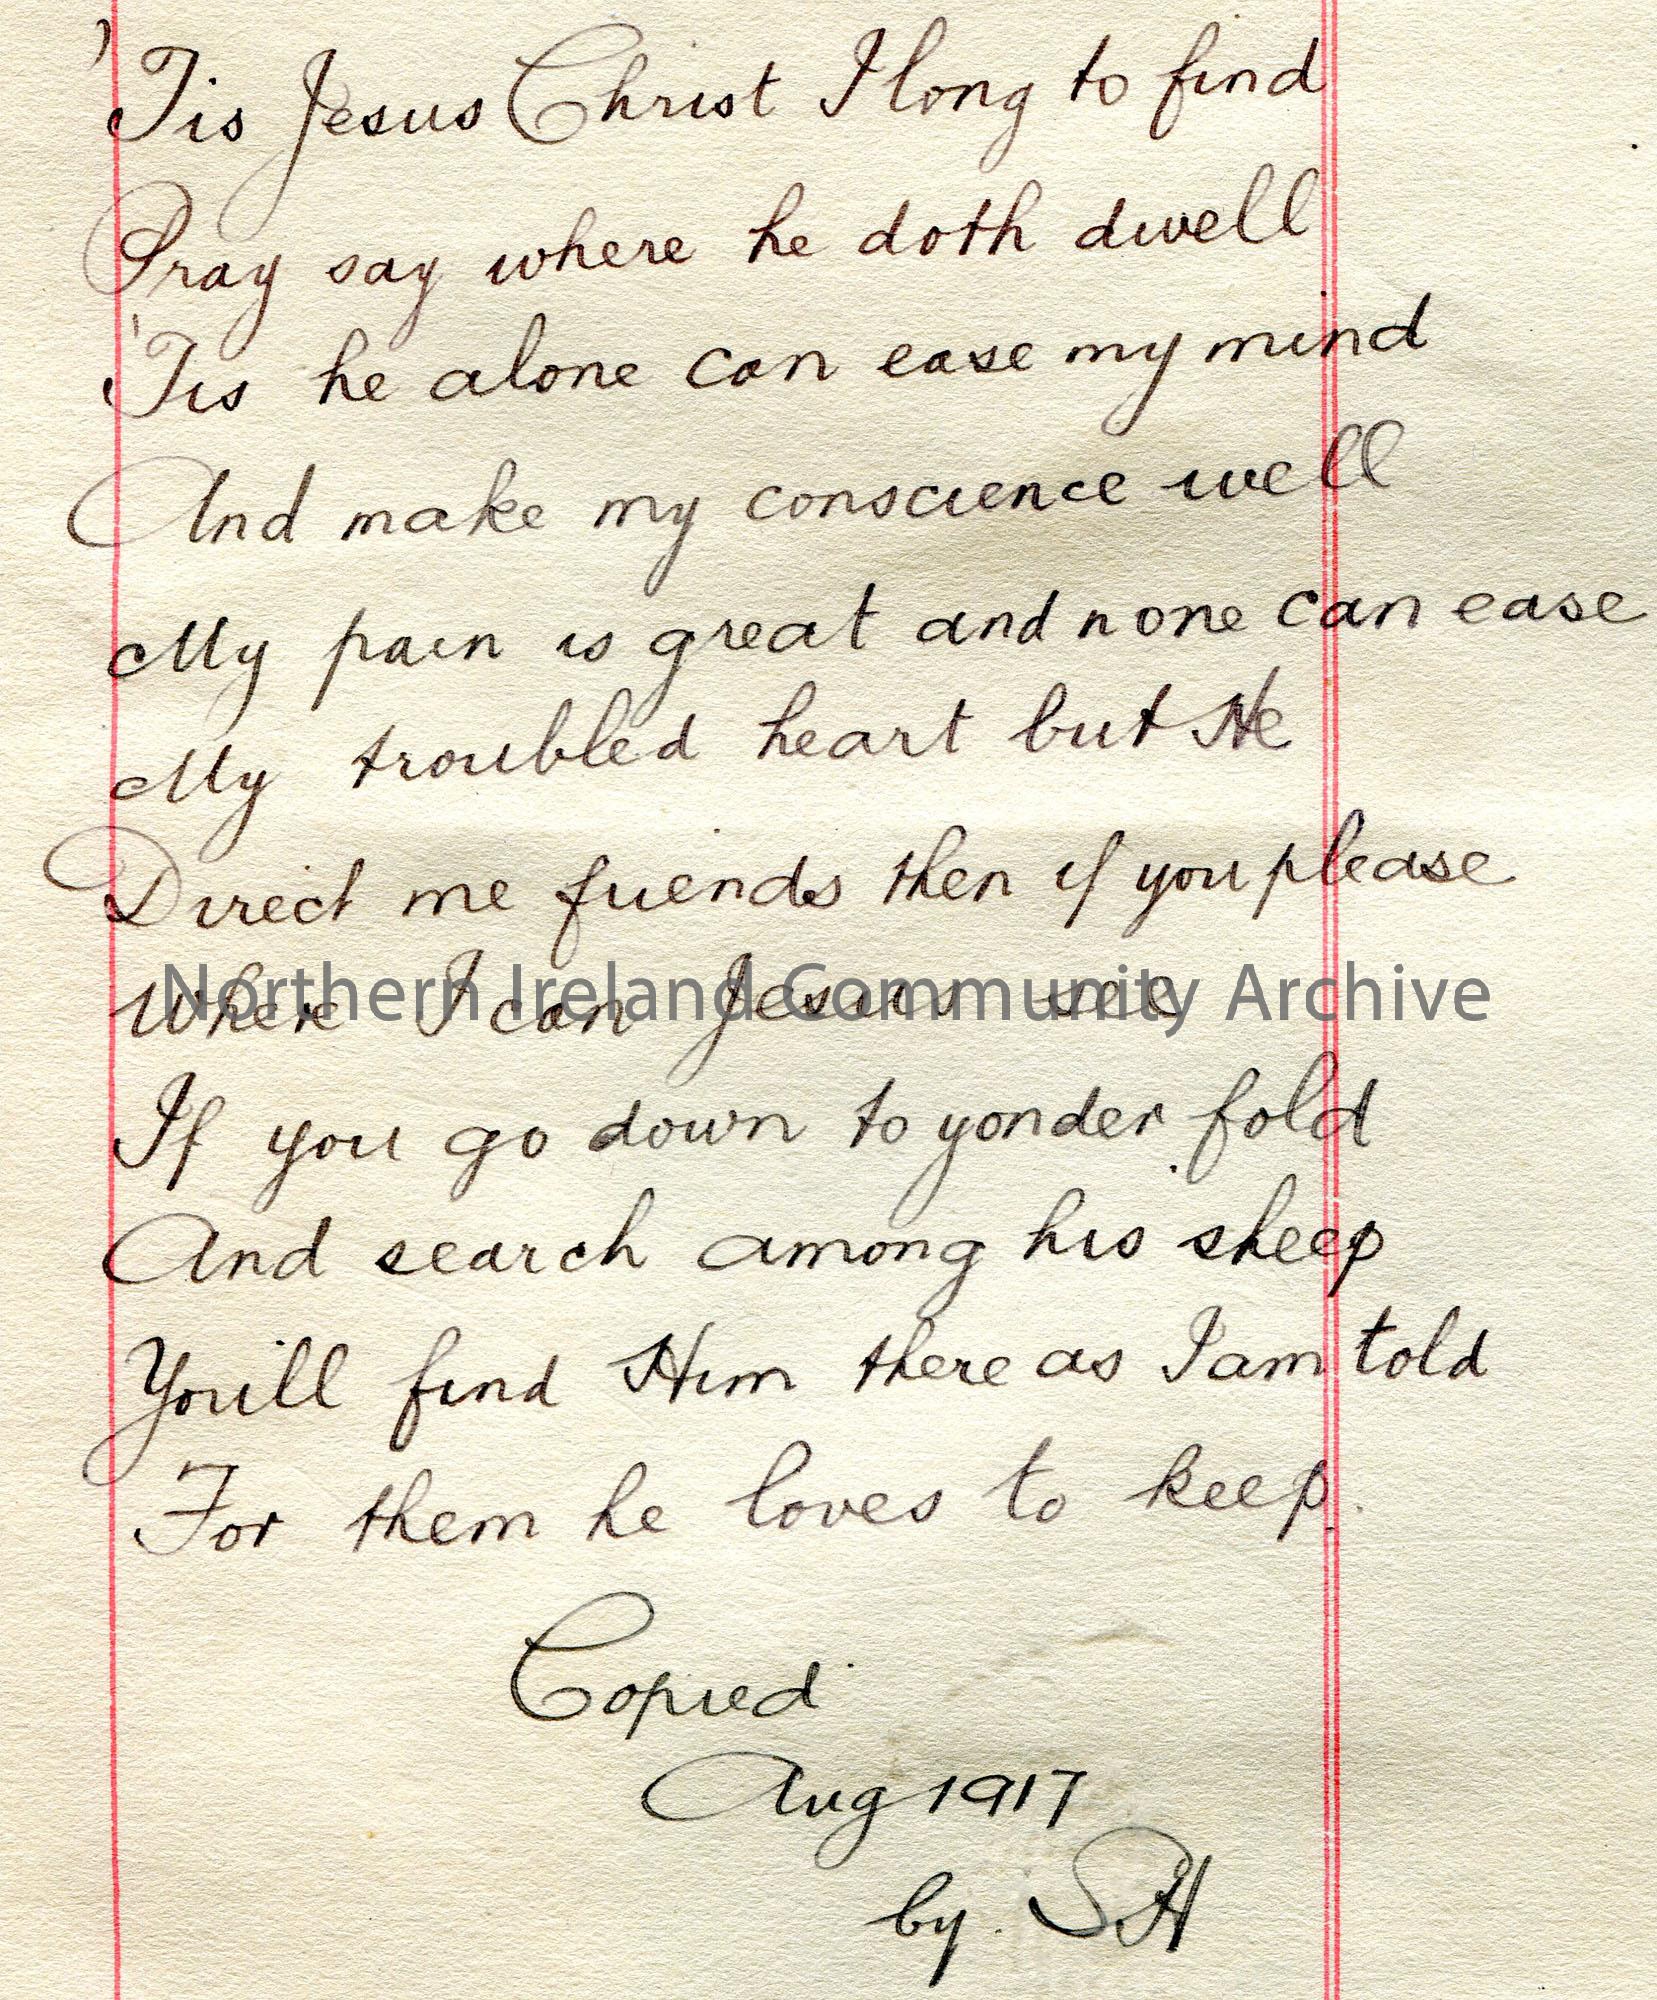 'Tis Jesus Christ I long to find
Pray say where he doth dwell
'Tis he alone can ease my mind
And make my conscience well
My pain is great and none can ease
My troubled heart but He
Direct me friends then if you please
Where I can Jesus see
Northern Ireland Community Archive
If you go down to yonder fold
And search among his sheep
You'll find Him there as I am told
For them he loves to keep.
Copied
Aug 1917
by. SH